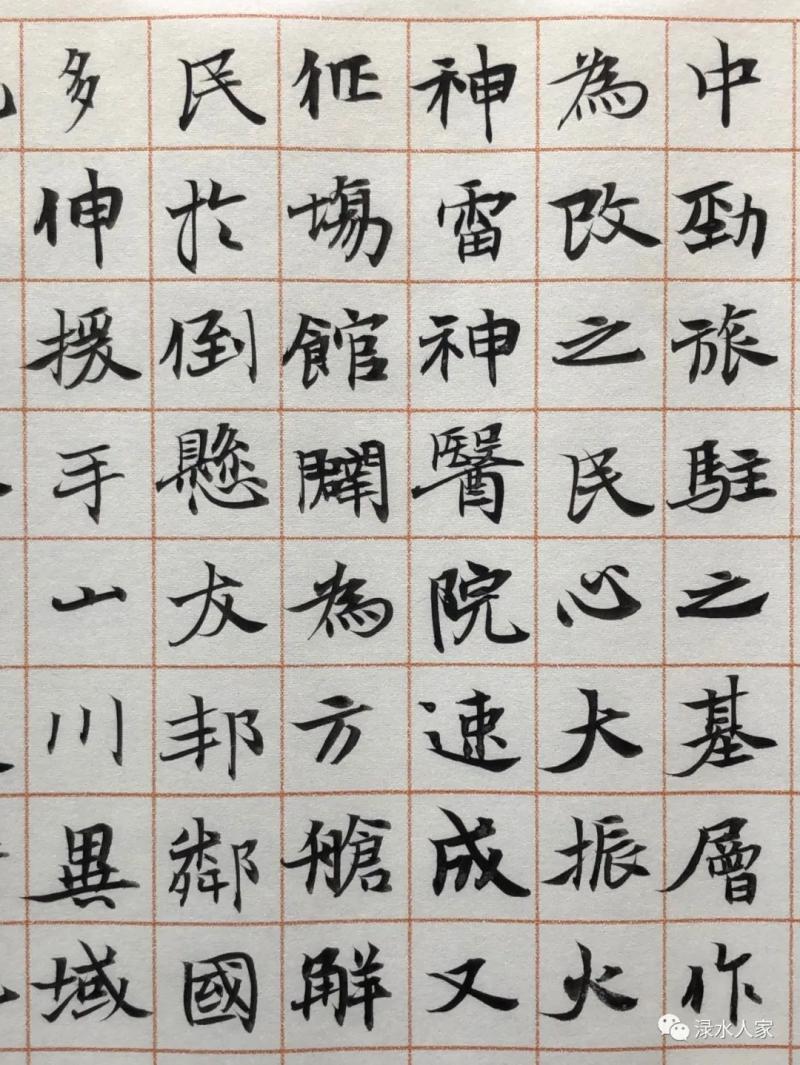 中勁旅駐之基層作
為改之民心大振火
神雷神醫院速成又
征場館闢為方艙解
民於倒懸友邦鄰國
多伸援手山川異域
渌水人家